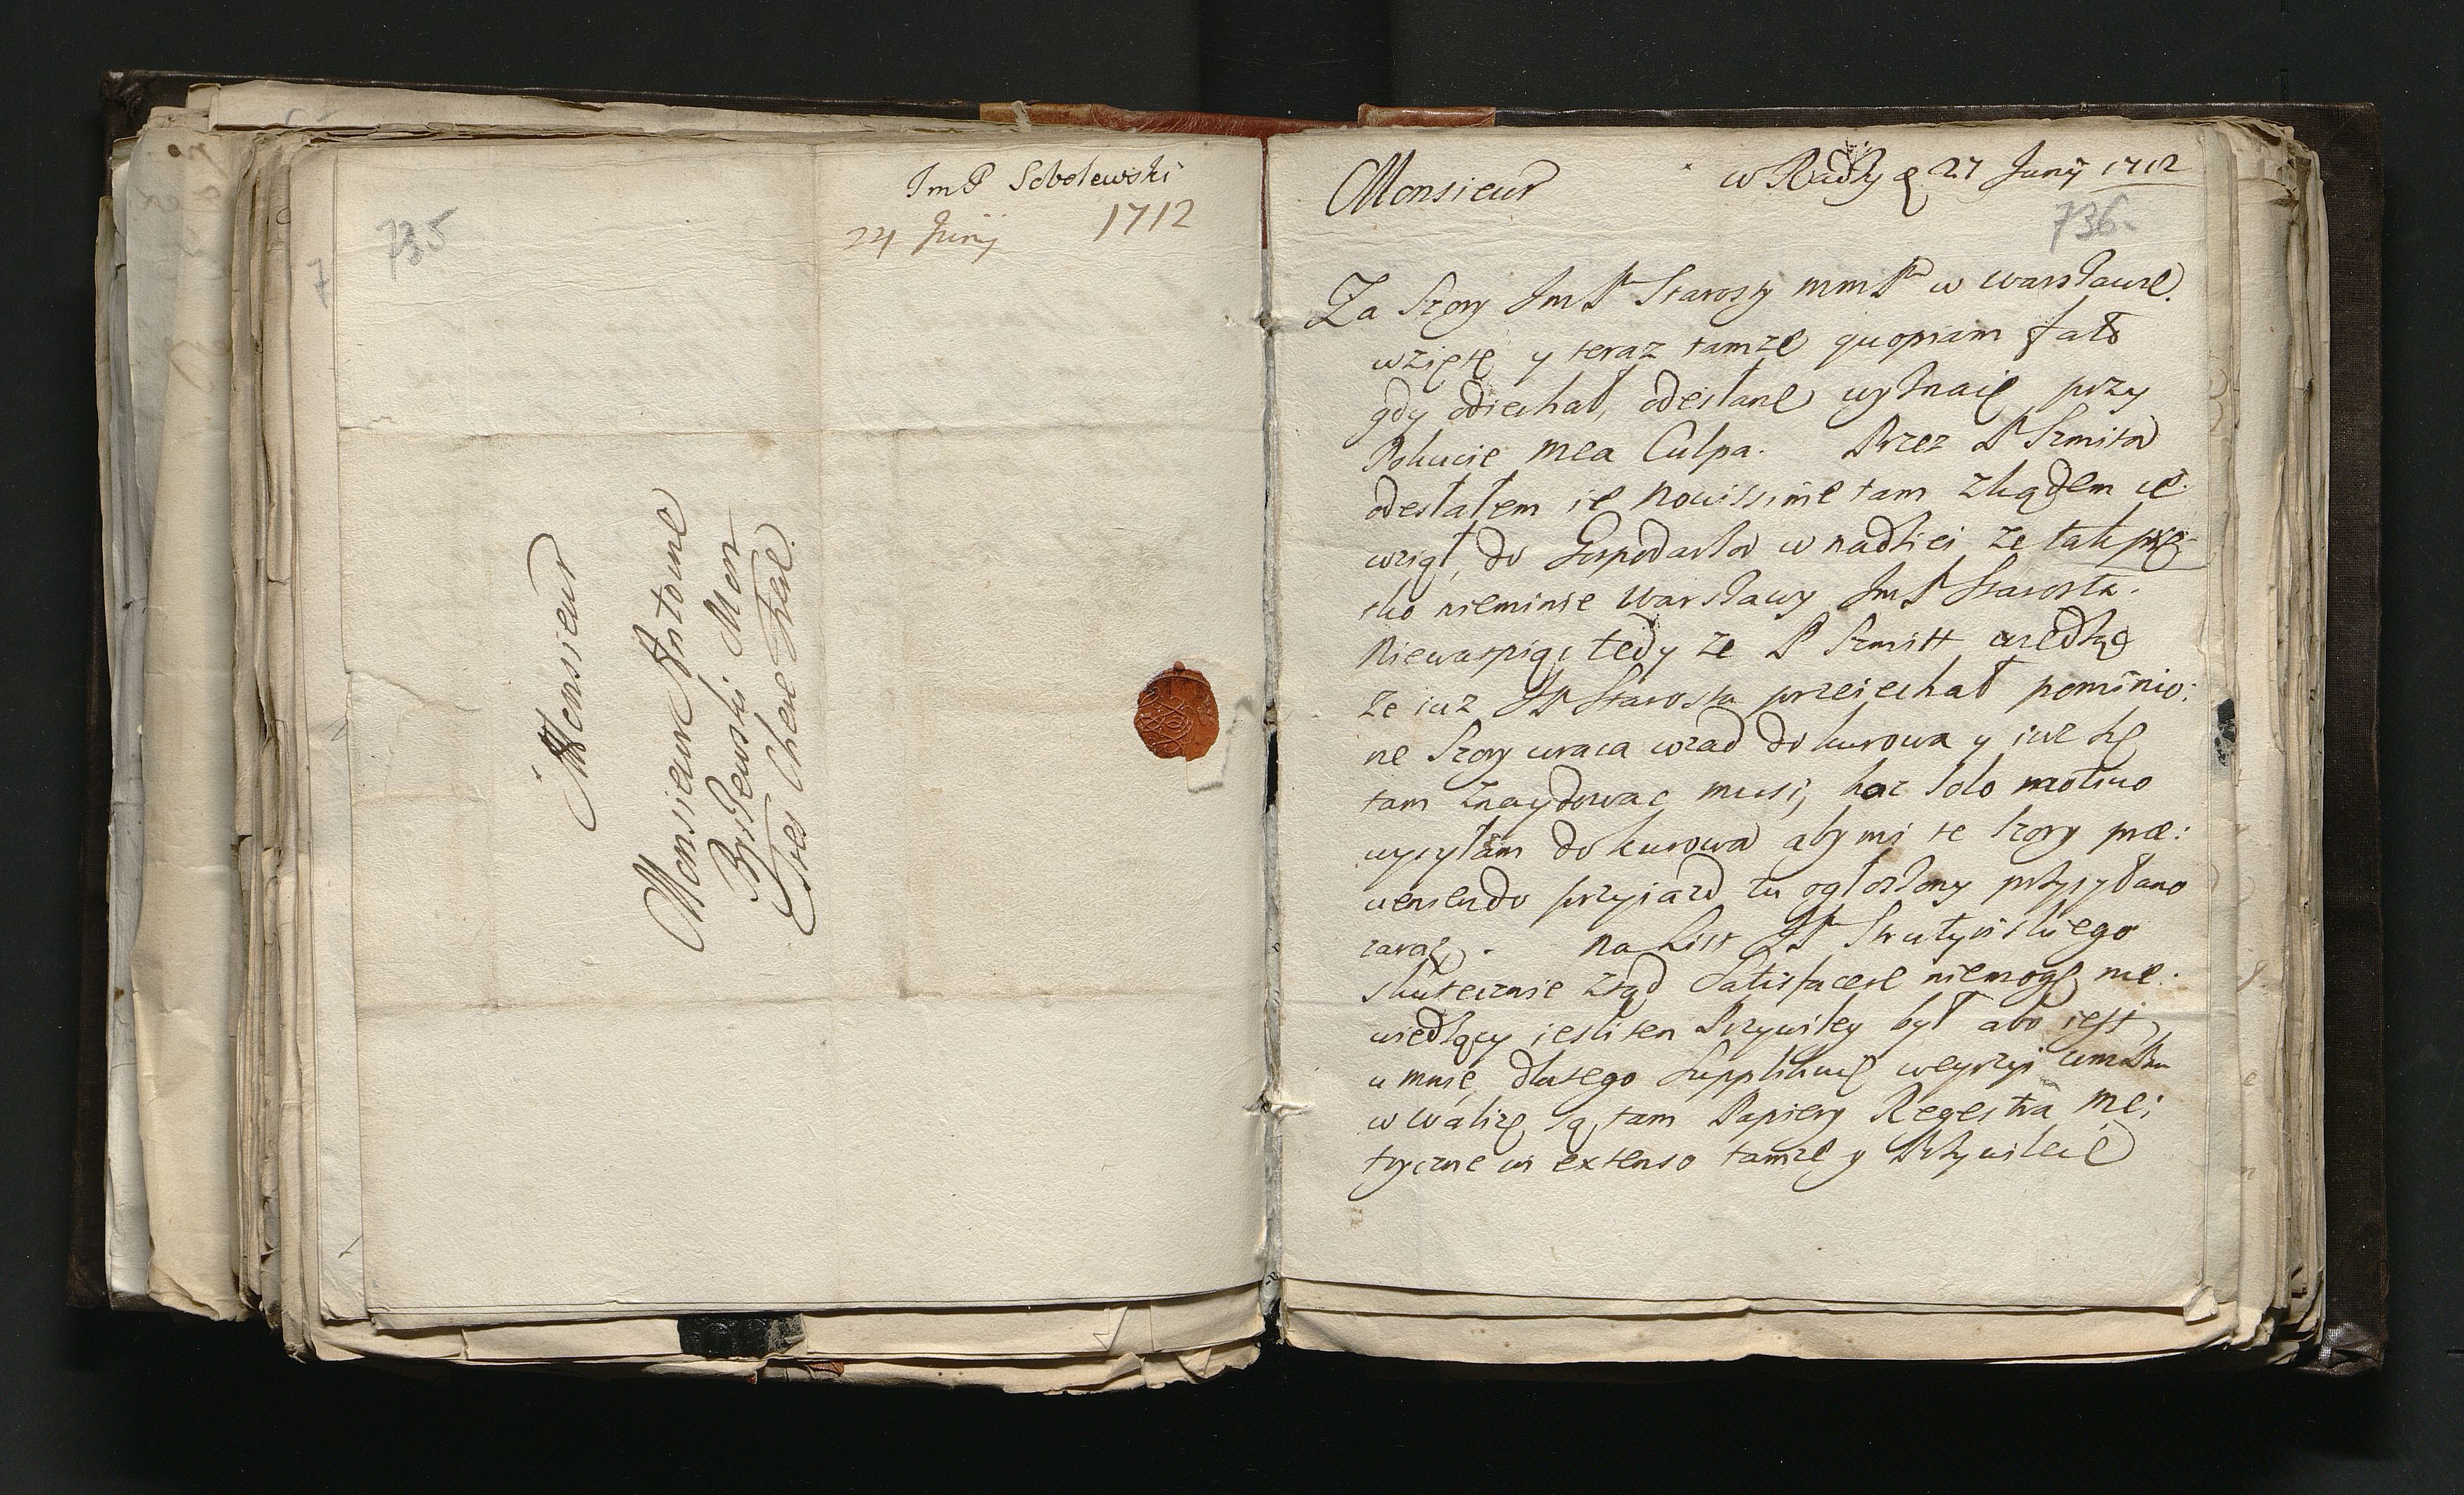 735
7
ImP Sobolewski
24 Junij 1712
Monsieur
Monsieur Antoine
Byszewski Mon
Tres Cher Frere.
Monsieur
w 27 Junij 1712
736.
Za Szory JmP Starosty mmP w warszawie.
wzięte y teraz tamze quopiam fato
gdy odiechał, odesłane wyznaię przy
Pokucie mea Culpa. Przez P Szmita
odesłałem ie novissime tam zkądem ie
wziął, do Gospodarza w nadziei ze tak prę-
tko nieminie Warszawy JmP Starosta.
Niewątpiąc tedy ze P Szmitt wiedząc
ze iuz JP Starosta przeiechał pominio:
ne Szory wraca wzad do kurowa y iuz się
tam znaydować musi, hac solo motivo
wysyłam do kurowa aby mi te szory præ:
veniendo przyiazd tu ogłoszony przysyłano
zaraz. Na List JP Skutecznie ztąd Satisfacere niemogę nie:
wiedzący iesli ten Przywiley był abo iest
u mnie, dlatego Supplikuię weyrzyi
w Walizę są tam Papiery Regestra me:
tryczne in extenso tamze y Przywileie